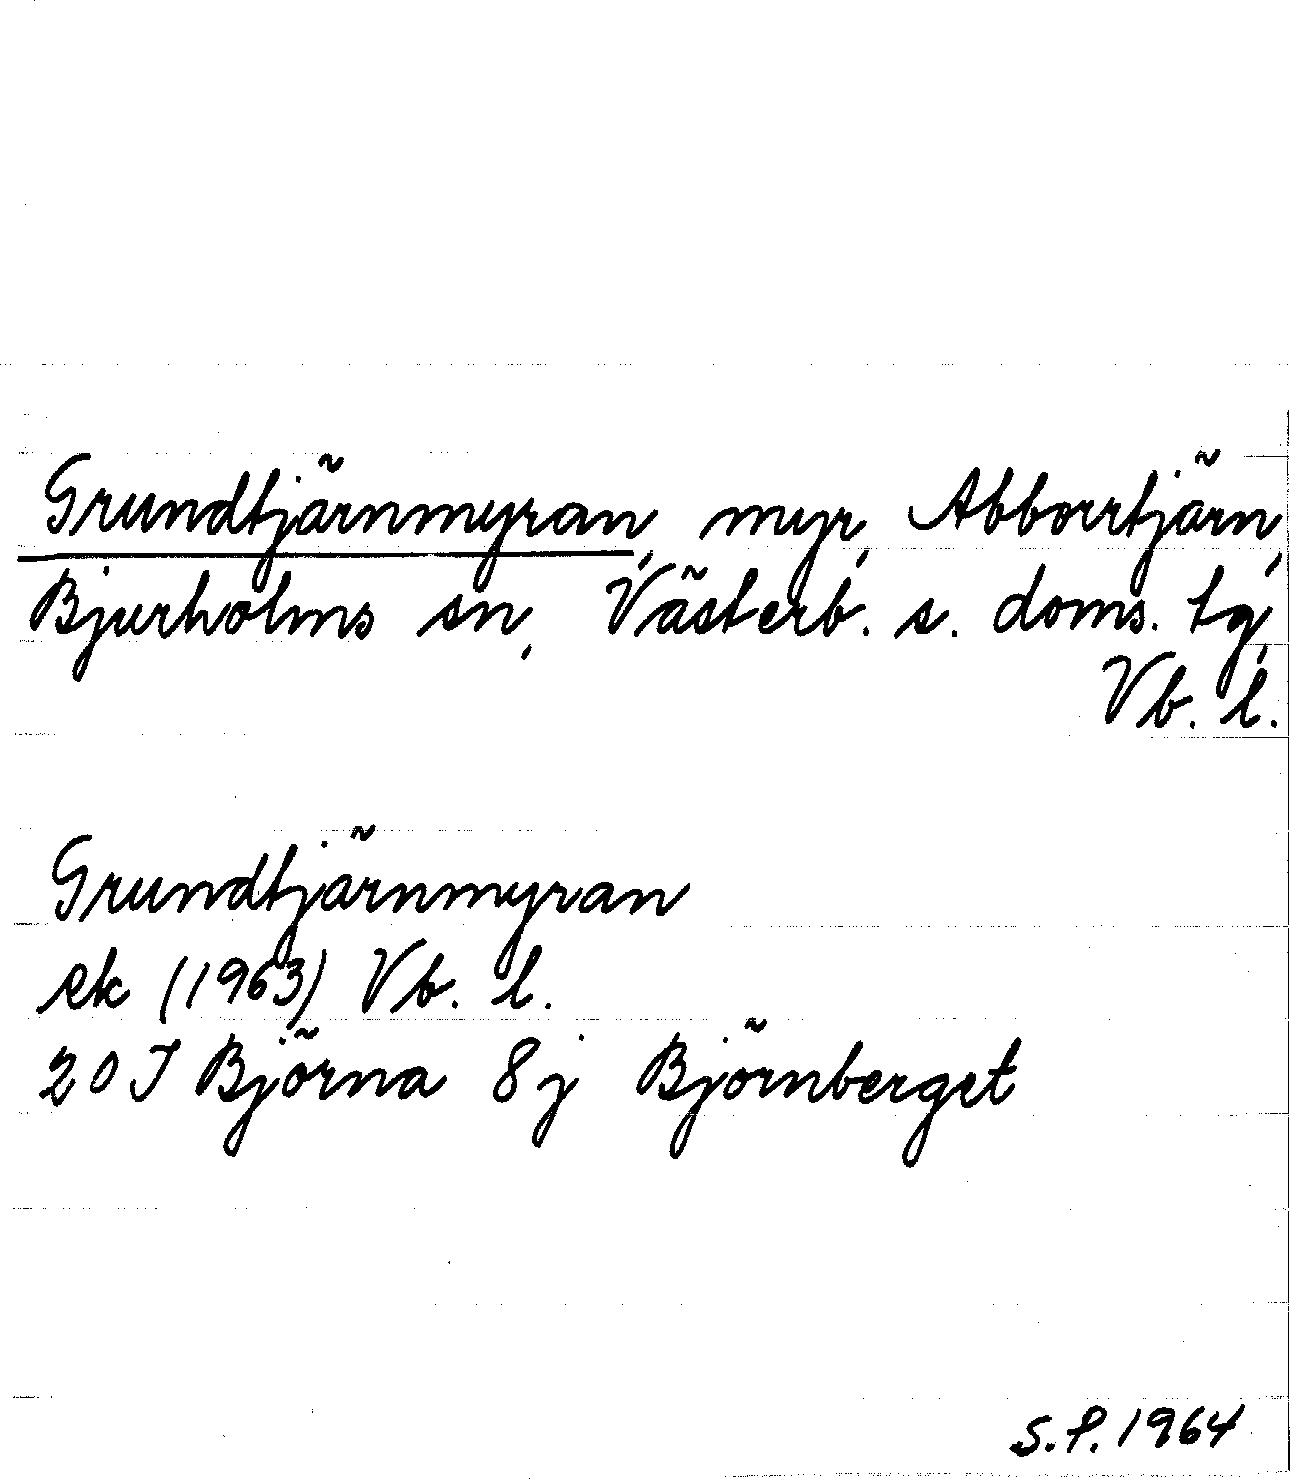 Grundtjärnmyran, myr, Abborrtjärn,
Bjurholms sn, Västerb. s. doms. tg,
Vb. l.
Grundtjärnmyran
ek (1963) Vb. l.
20 I Björna 8 j Björnberget
S.P. 1964